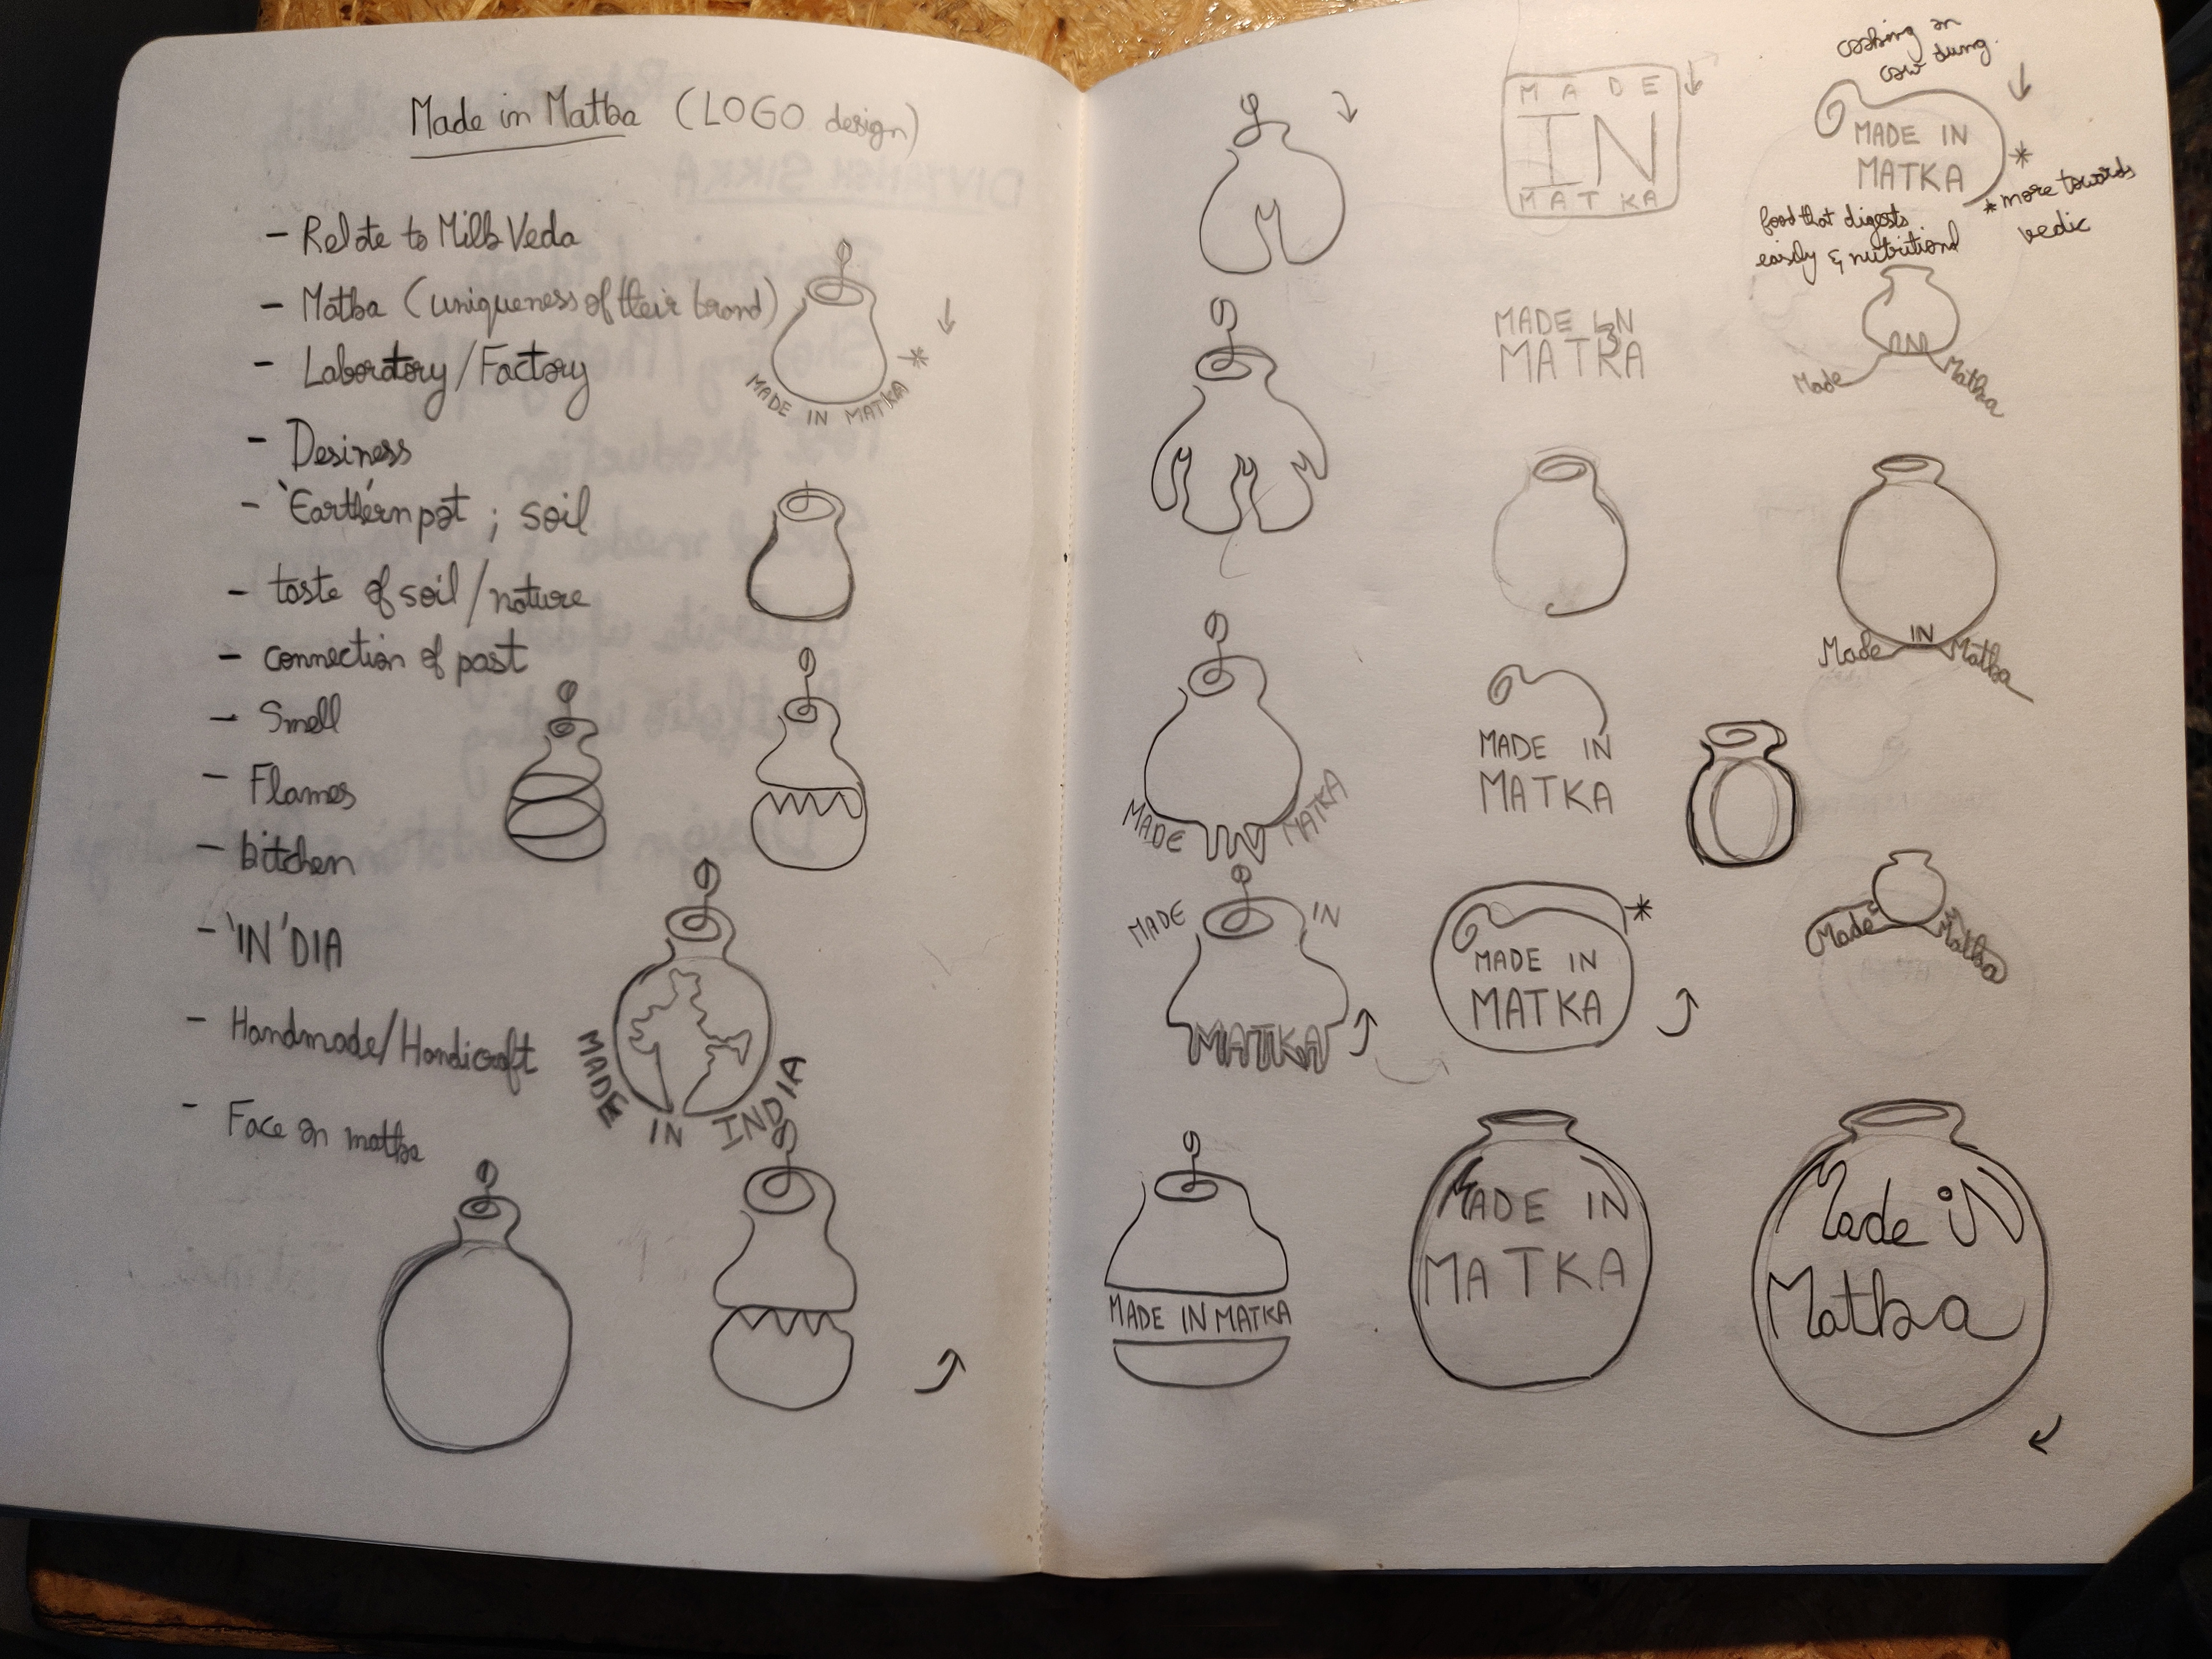 Made in Matka (LOGO design)
- Relate to Milk Veda
- Matka (uniqueness of their brand)
- Laboratory/Factory
- Desiness
- 'Earthern pot ; soil
- taste of soil/nature
- connection of past
- Smell
- Flames
- kitchen
- 'IN'DIA
- Handmade/Handicraft
- Face on matka
MADE IN MATKA *
MADE IN INDIA
MADE IN MATKA
MADE IN
MATKA
MADE IN MATKA
MADE
IN
MATKA
MADE IN
MATKA
MADE IN
MATKA
MADE IN
MATKA
*
MADE IN
MATKA
cooking on
cow dung.
MADE IN
MATKA
*
* more towards
vedic
food that digests
easily & nutritional
Made IN Matka
Made IN Matka
Made Matka
Made iN
Matka